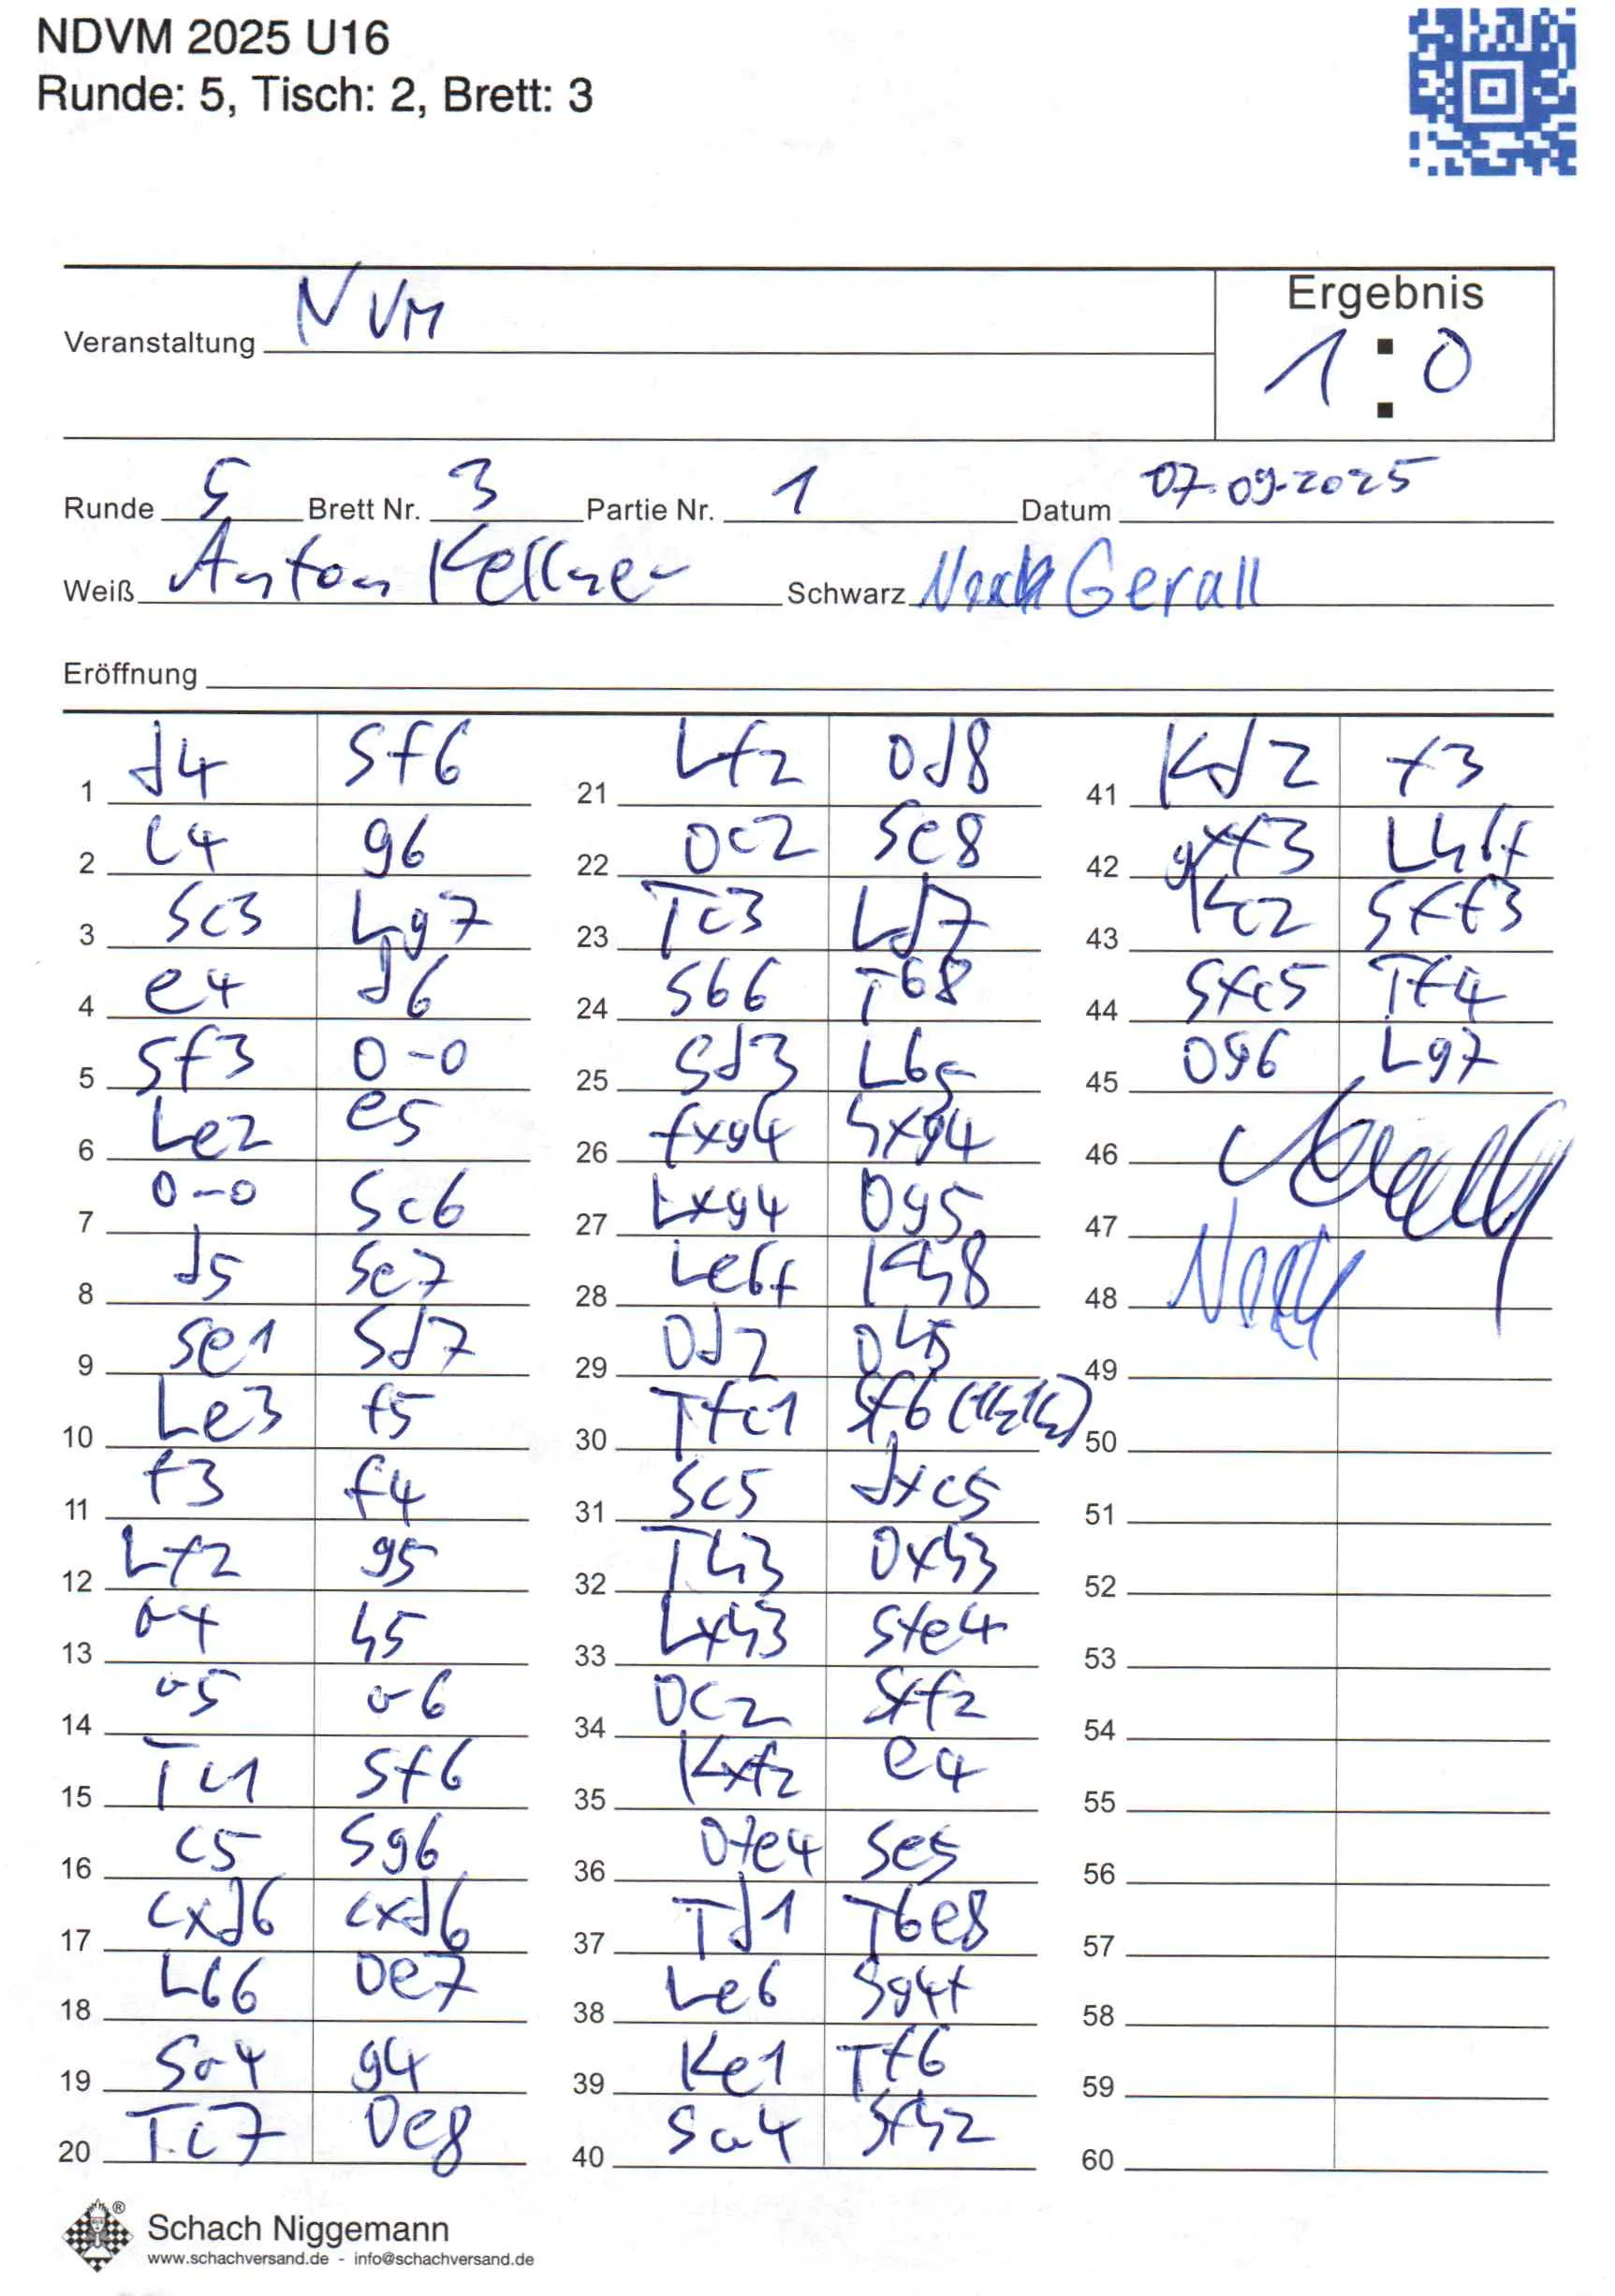 NDVM 2025 U16
Runde: 5, Tisch: 2, Brett: 3
Ergebnis
Veranstaltung NVM
1 : 0
Runde 5 Brett Nr. 3 Partie Nr. 1 Datum 07.09.2025
Weiß Anton Kellner Schwarz Gerall
Eröffnung
1 d4 Sf6
2 c4 g6
3 Sc3 Lg7
4 e4 d6
5 Sf3 0-0
6 Le2 e5
7 0-0 Sc6
8 d5 Se7
9 Se1 Sd7
10 Le3 f5
11 f3 f4
12 Lf2 g5
13 a4 h5
14 a5 a6
15 Tc1 Sf6
16 c5 Sg6
17 cxd6 cxd6
18 Lb6 De7
19 Sa4 g4
20 Tc7 De8
21 Lf2 Dd8
22 Dc2 Se8
23 Tc3 Ld7
24 Sb6 Tb8
25 Sd3 Lb5
26 fxg4 hxg4
27 Lxg4 Dg5
28 Le6+ Kh8
29 Dd2 Dh5
30 Tfc1 Sf6 (1/2 1/2)
31 Sc5 dxc5
32 Th3 Dxh3
33 Lxh3 Sxe4
34 Dc2 Sxf2
35 Kxf2 e4
36 Dxe4 Se5
37 Td1 Tbe8
38 Le6 Sg4+
39 Ke1 Tf6
40 Sa4 Sxh2
41 Kd2 f3
42 gxf3 Lh6+
43 Kc2 Sxf3
44 Sxc5 Tf4
45 Dg6 Lg7
46
47
48
49
50
51
52
53
54
55
56
57
58
59
60
Schach Niggemann
www.schachversand.de - info@schachversand.de